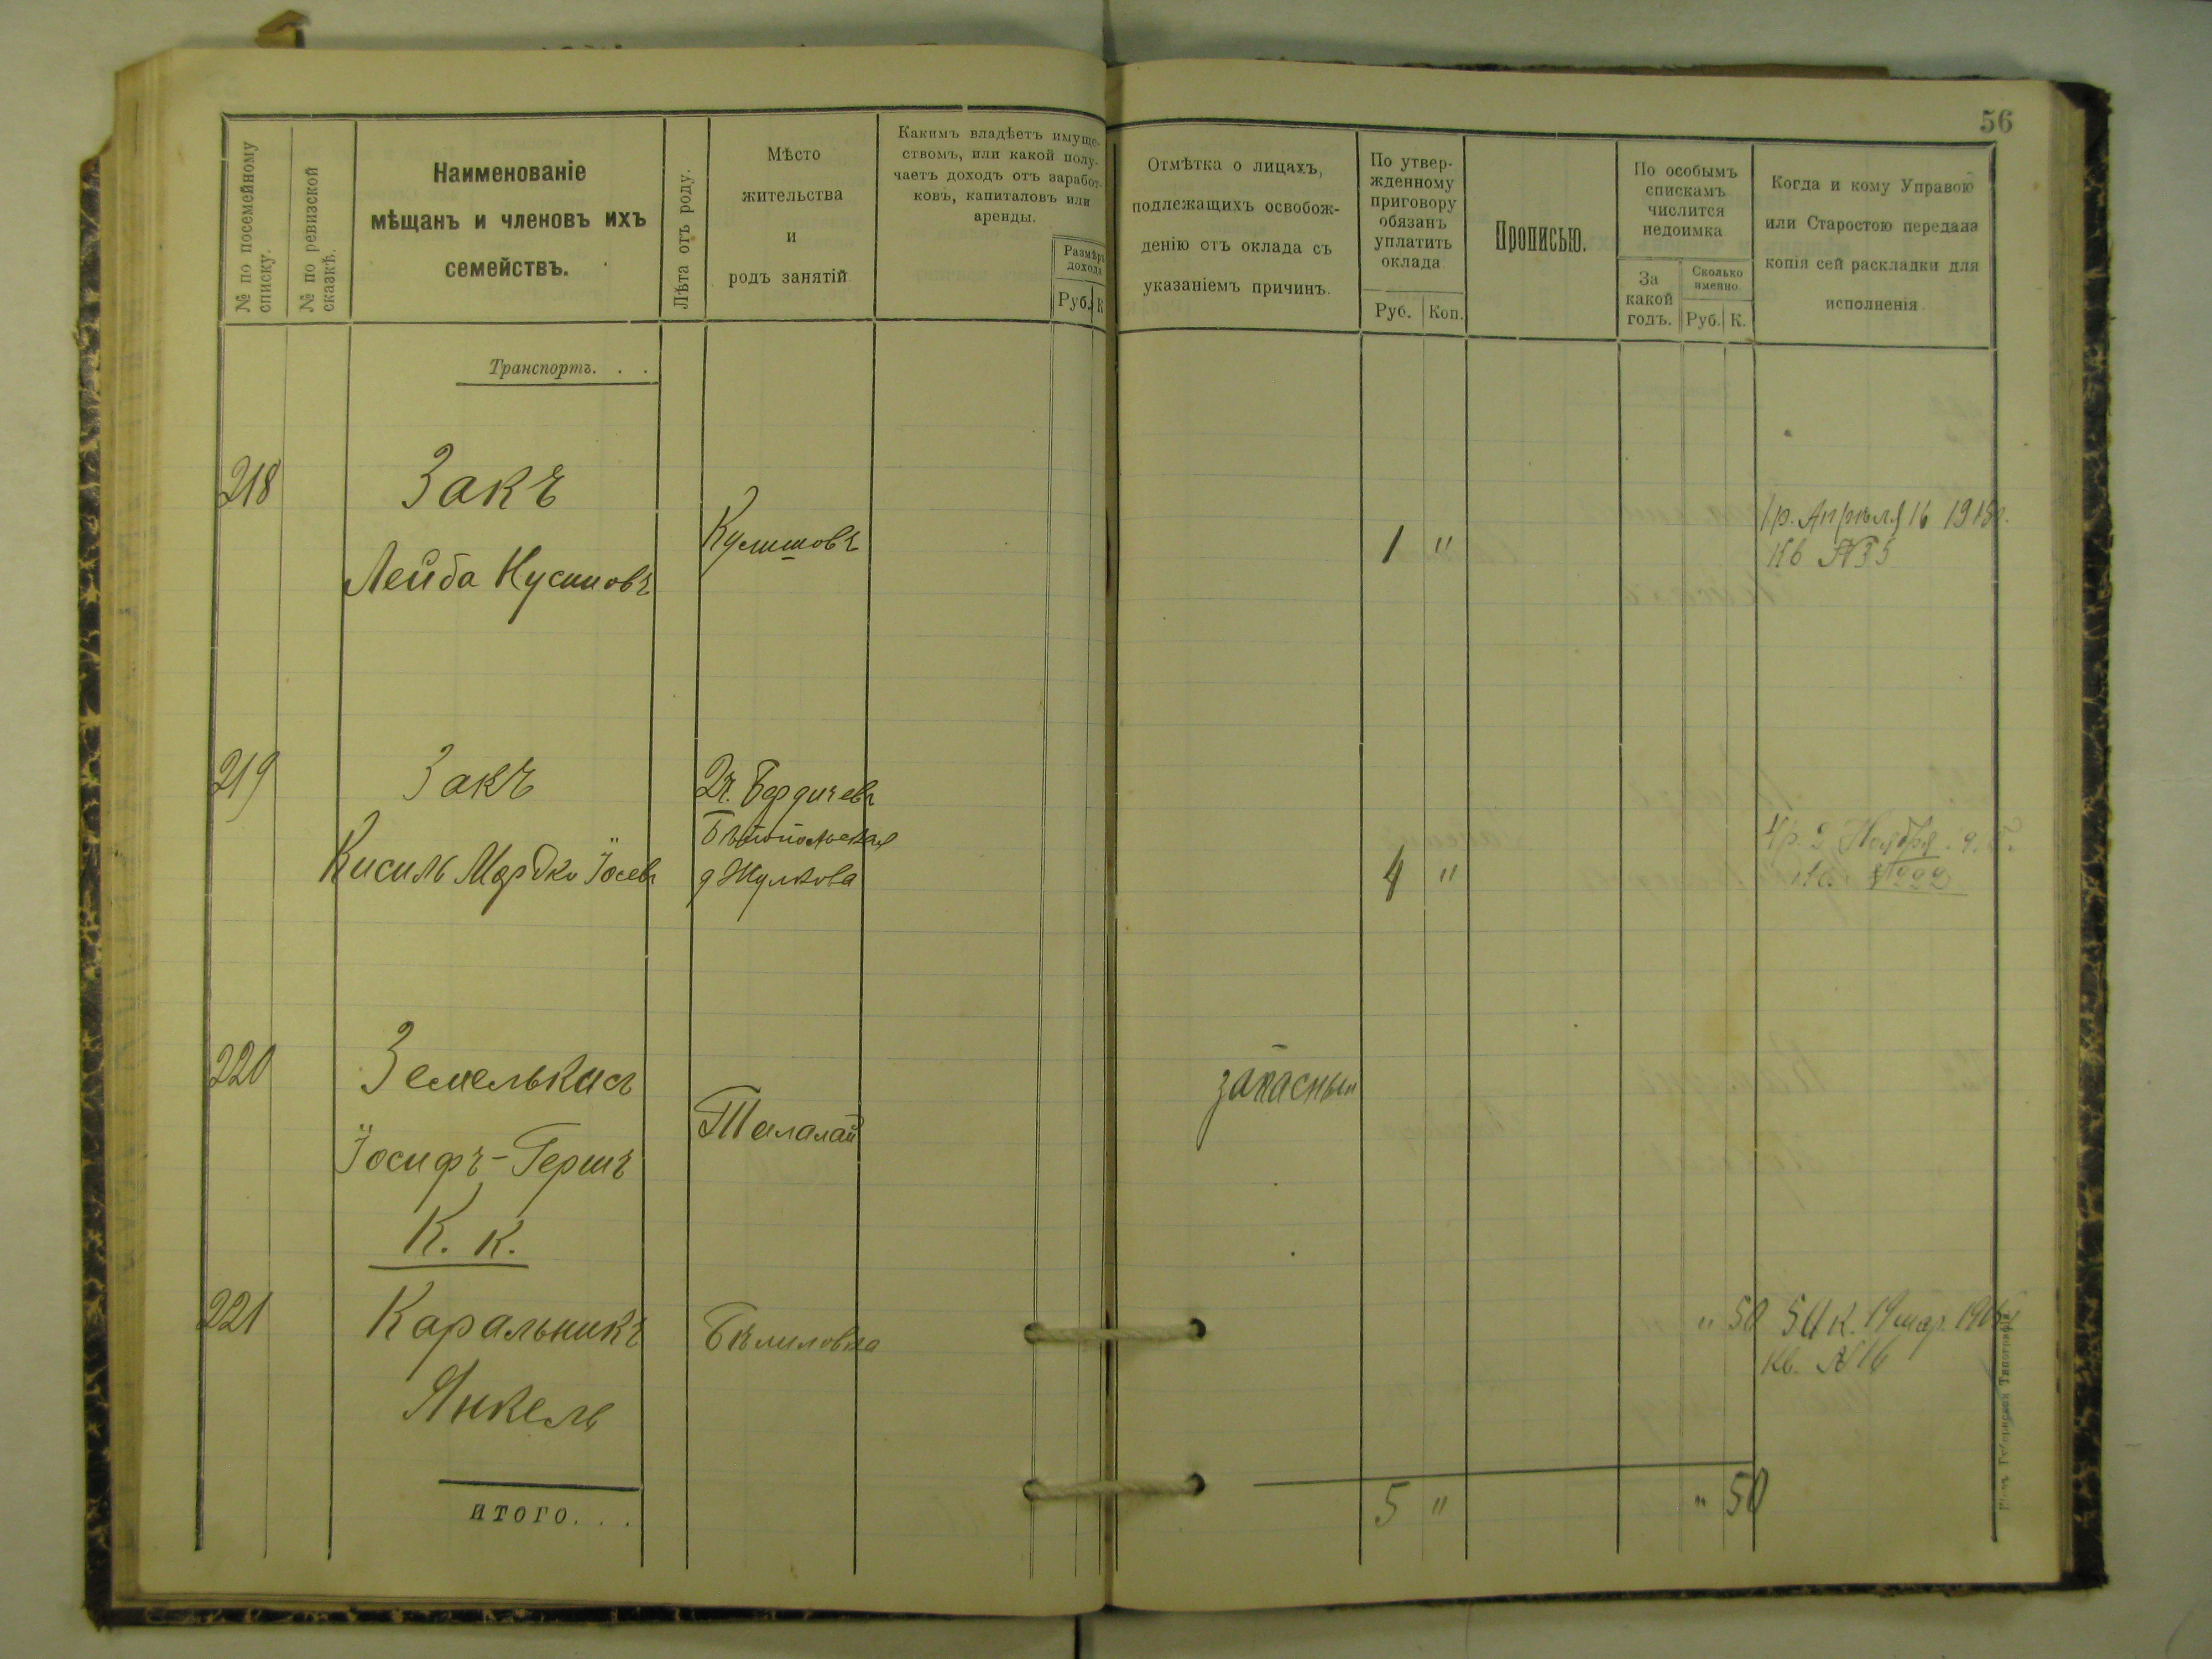 56
№ по посемейному списку.
№ по ревизской сказкѣ.
Наименованіе
мѣщанъ и членовъ ихъ
семействъ.
Лѣта отъ роду.
Мѣсто
жительства
и
родъ занятій
Какимъ владѣетъ имуще-
ствомъ, или какой полу-
чаетъ доходъ отъ заработ-
ковъ, капиталовъ или
аренды.
Размѣръ
дохода
Руб. К
Отмѣтка о лицахъ,
подлежащихъ освобож-
денію отъ оклада съ
указаніемъ причинъ.
По утвер-
жденному
приговору
обязанъ
уплатить
оклада
Руб. Коп.
Прописью.
По особымъ
спискамъ
числится
недоимка
За
какой
годъ.
Сколько
именно
Руб. К.
Когда и кому Управою
или Старостою передана
копія сей раскладки для
исполненія
Транспортъ. . .
218
Закъ
Лейба Нусиновъ
1 "
1 р. Апрѣля 16
Кв №35
219
Закъ
Кисиль Мордко Іосевъ
Бердичевъ
д Жулкова
4 "
4 р. 2 Ноября
220
Земелькисъ
Іосифъ-Гершъ
Талалай
запасный
К. К.
221
Каральникъ
Янкель
Бѣлиловка
" 50
50 к. 19 мар.
Кв. №16
итого. . .
5 "
" 50
Губернская Типографія